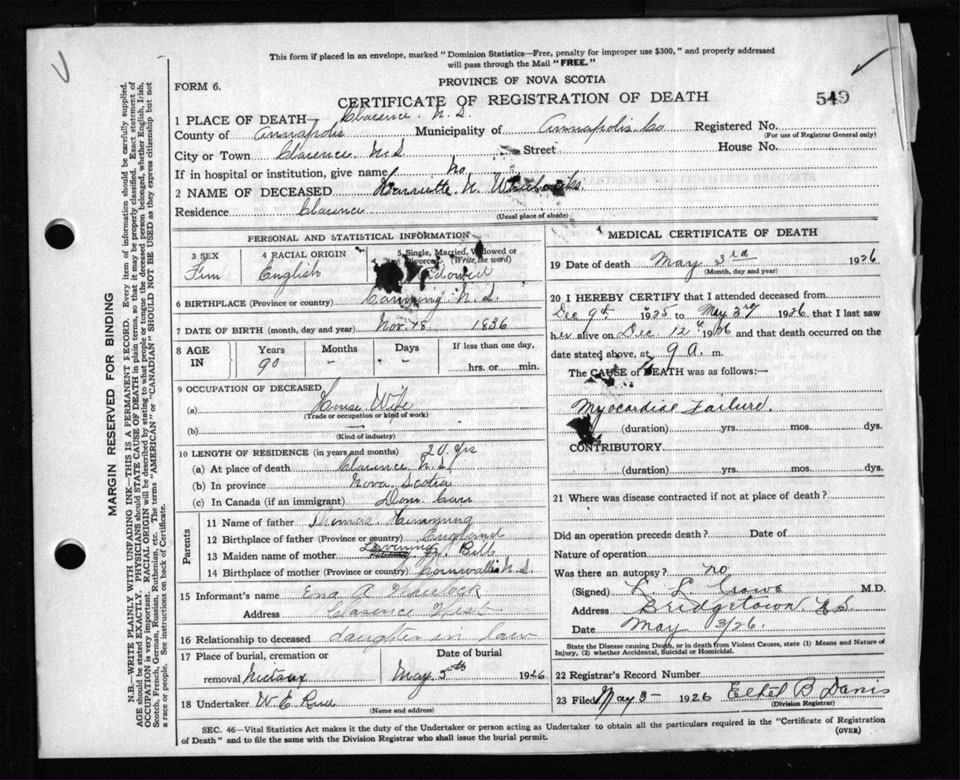 This form if placed in an envelope, marked "Dominion Statistics—Free, penalty for improper use $300," and properly addressed
will pass through the Mail "FREE."
FORM 6.
PROVINCE OF NOVA SCOTIA
CERTIFICATE OF REGISTRATION OF DEATH
549
1 PLACE OF DEATH Clarence N.S.
County of Annapolis Municipality of Annapolis Co Registered No.
(For use of Registrar General only)
City or Town Clarence N.S Street House No.
If in hospital or institution, give name No
2 NAME OF DECEASED Harriette N.
Residence Clarence
(Usual place of abode)
PERSONAL AND STATISTICAL INFORMATION
3 SEX Fem
4 RACIAL ORIGIN English
5 Single, Married, Widowed or Divorced. (Write the word) Widowed
6 BIRTHPLACE (Province or country) Canning N.S.
7 DATE OF BIRTH (month, day and year) Nov. 18 1836
8 AGE IN Years Months Days If less than one day,
90 - - hrs. or min.
9 OCCUPATION OF DECEASED
(a) House Wife
(Trade or occupation or kind of work)
(b)
(Kind of industry)
10 LENGTH OF RESIDENCE (in years and months) 20 yrs
(a) At place of death Clarence N.S.
(b) In province Nova Scotia
(c) In Canada (if an immigrant) Dom.
Parents
11 Name of father Thomas
12 Birthplace of father (Province or country) England
13 Maiden name of mother
14 Birthplace of mother (Province or country) Cornwallis N.S.
15 Informant's name Ena A
Address Clarence West
16 Relationship to deceased daughter in law
17 Place of burial, cremation or Date of burial
removal Nictaux May 5th 1926
18 Undertaker W E
(Name and address)
MEDICAL CERTIFICATE OF DEATH
19 Date of death May 3rd 1926
(Month, day and year)
20 I HEREBY CERTIFY that I attended deceased from
Dec 9th 1925 to May 3rd 1926 that I last saw
her alive on Dec. 12th and that death occurred on the
date stated above, at 9 a. m.
The CAUSE of DEATH was as follows:—
Myocardial Failure.
(duration) yrs. mos. dys.
CONTRIBUTORY
(duration) yrs. mos. dys.
21 Where was disease contracted if not at place of death?
Did an operation precede death? Date of
Nature of operation
Was there an autopsy? no
(Signed) L. L. Crowe M.D.
Address Bridgetown, N.S.
Date May 3/26.
State the Disease causing Death, or in death from Violent Causes, state (1) Means and Nature of
Injury, (2) whether Accidental, Suicidal or Homicidal.
22 Registrar's Record Number
23 Filed May 3- 1926 Ethel B Davis
(Division Registrar)
SEC. 46—Vital Statistics Act makes it the duty of the Undertaker or person acting as Undertaker to obtain all the particulars required in the "Certificate of Registration
of Death" and to file the same with the Division Registrar who shall issue the burial permit.
(OVER)
MARGIN RESERVED FOR BINDING
N.B.—WRITE PLAINLY WITH UNFADING INK—THIS IS A PERMANENT RECORD. Every item of information should be carefully supplied.
AGE should be stated EXACTLY. PHYSICIANS should STATE CAUSE OF DEATH in plain terms, so that it may be properly classified. Exact statement of
OCCUPATION is very important. RACIAL ORIGIN will be described by stating to what people or tongue the deceased person belonged, whether English, Irish,
Scotch, French, German, Russian, Ruthenian, etc. The terms "AMERICAN" or "CANADIAN" SHOULD NOT BE USED as they express citizenship but not
a race or people. See instructions on back of Certificate.